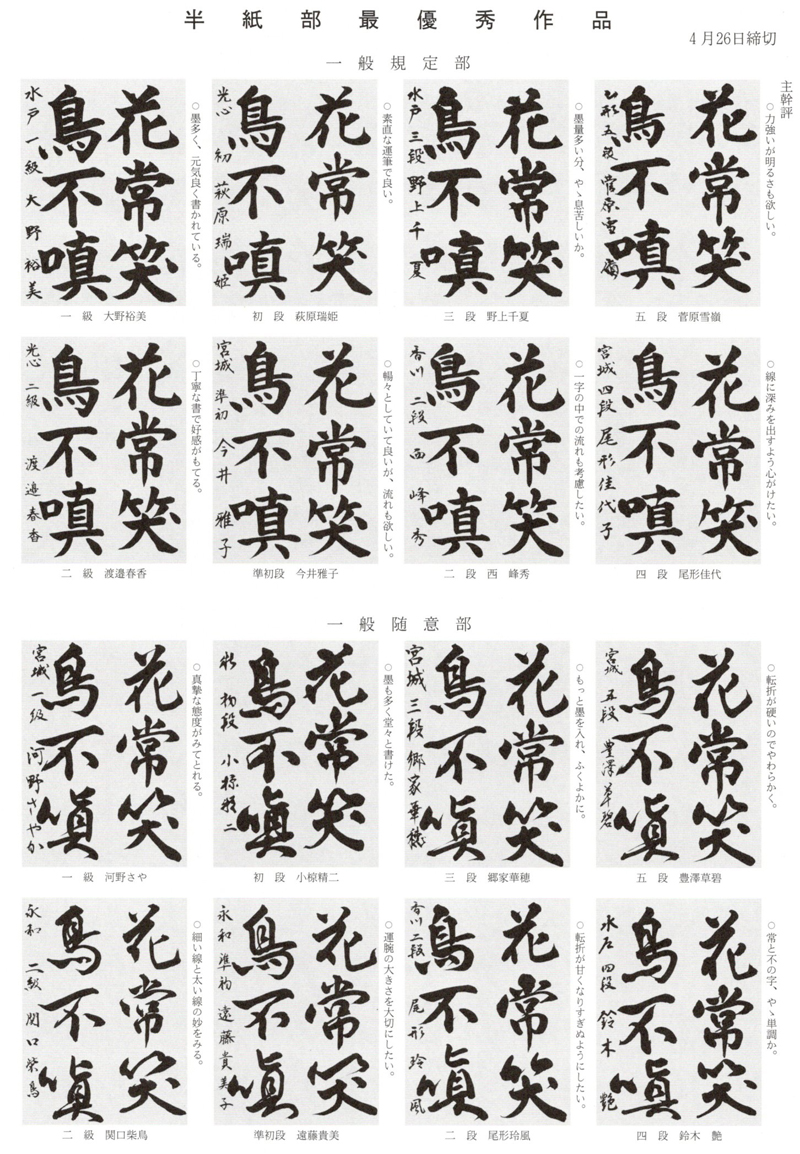 半紙部最優秀作品
4月26日締切
一般規定部
主幹評
○力強いが明るさも欲しい。
花常笑
鳥不嗔
五段 菅原雪嶺
○墨量多い分、やゝ息苦しいか。
花常笑
鳥不嗔
水戸 三段 野上千夏
三段 野上千夏
○素直な運筆で良い。
花常笑
鳥不嗔
光心 初 萩原瑞姫
初段 萩原瑞姫
○墨多く、元気良く書かれている。
花常笑
鳥不嗔
水戸 一級 大野裕美
一級 大野裕美
○線に深みを出すよう心がけたい。
花常笑
鳥不嗔
宮城 四段 尾形佳代子
四段 尾形佳代
○一字の中での流れも考慮したい。
花常笑
鳥不嗔
香川 二段 西峰秀
二段 西 峰秀
○暢々としていて良いが、流れも欲しい。
花常笑
鳥不嗔
宮城 準初 今井雅子
準初段 今井雅子
○丁寧な書で好感がもてる。
花常笑
鳥不嗔
光心 二級 渡邉春香
二級 渡邉春香
一般随意部
○転折が硬いのでやわらかく。
花常笑
鳥不嗔
宮城 五段 豊澤草碧
五段 豊澤草碧
○もっと墨を入れ、ふくよかに。
花常笑
鳥不嗔
宮城 三段 郷家華穂
三段 郷家華穂
○墨も多く堂々と書けた。
花常笑
鳥不嗔
初段 小椋精二
初段 小椋精二
○真摯な態度がみてとれる。
花常笑
鳥不嗔
宮城 一級 河野さやか
一級 河野さや
○常と不の字、やゝ単調か。
花常笑
鳥不嗔
水戸 四段 鈴木 艶
四段 鈴木 艶
○転折が甘くなりすぎぬようにしたい。
花常笑
鳥不嗔
香川 二段 尾形玲風
二段 尾形玲風
○運腕の大きさを大切にしたい。
花常笑
鳥不嗔
永和 準初 遠藤貴美子
準初段 遠藤貴美
○細い線と太い線の妙をみる。
花常笑
鳥不嗔
永和 二級 関口柴鳥
二級 関口柴鳥